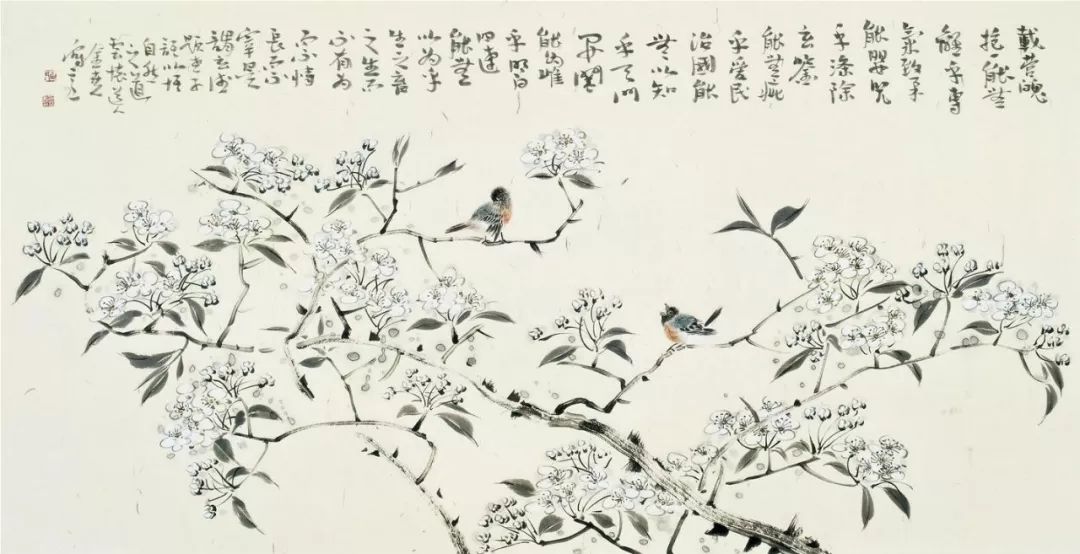 載營魄
抱能無
離乎專
氣致柔
能嬰兒
乎滌除
玄鑒
能無疵
乎愛民
治國能
無以知
乎天門
開闔
能為雌
乎明白
四達
能無
以為乎
生之畜
之生而
不有為
而不恃
長而不
宰是
謂玄德
題老子
語以悟
自然
之道